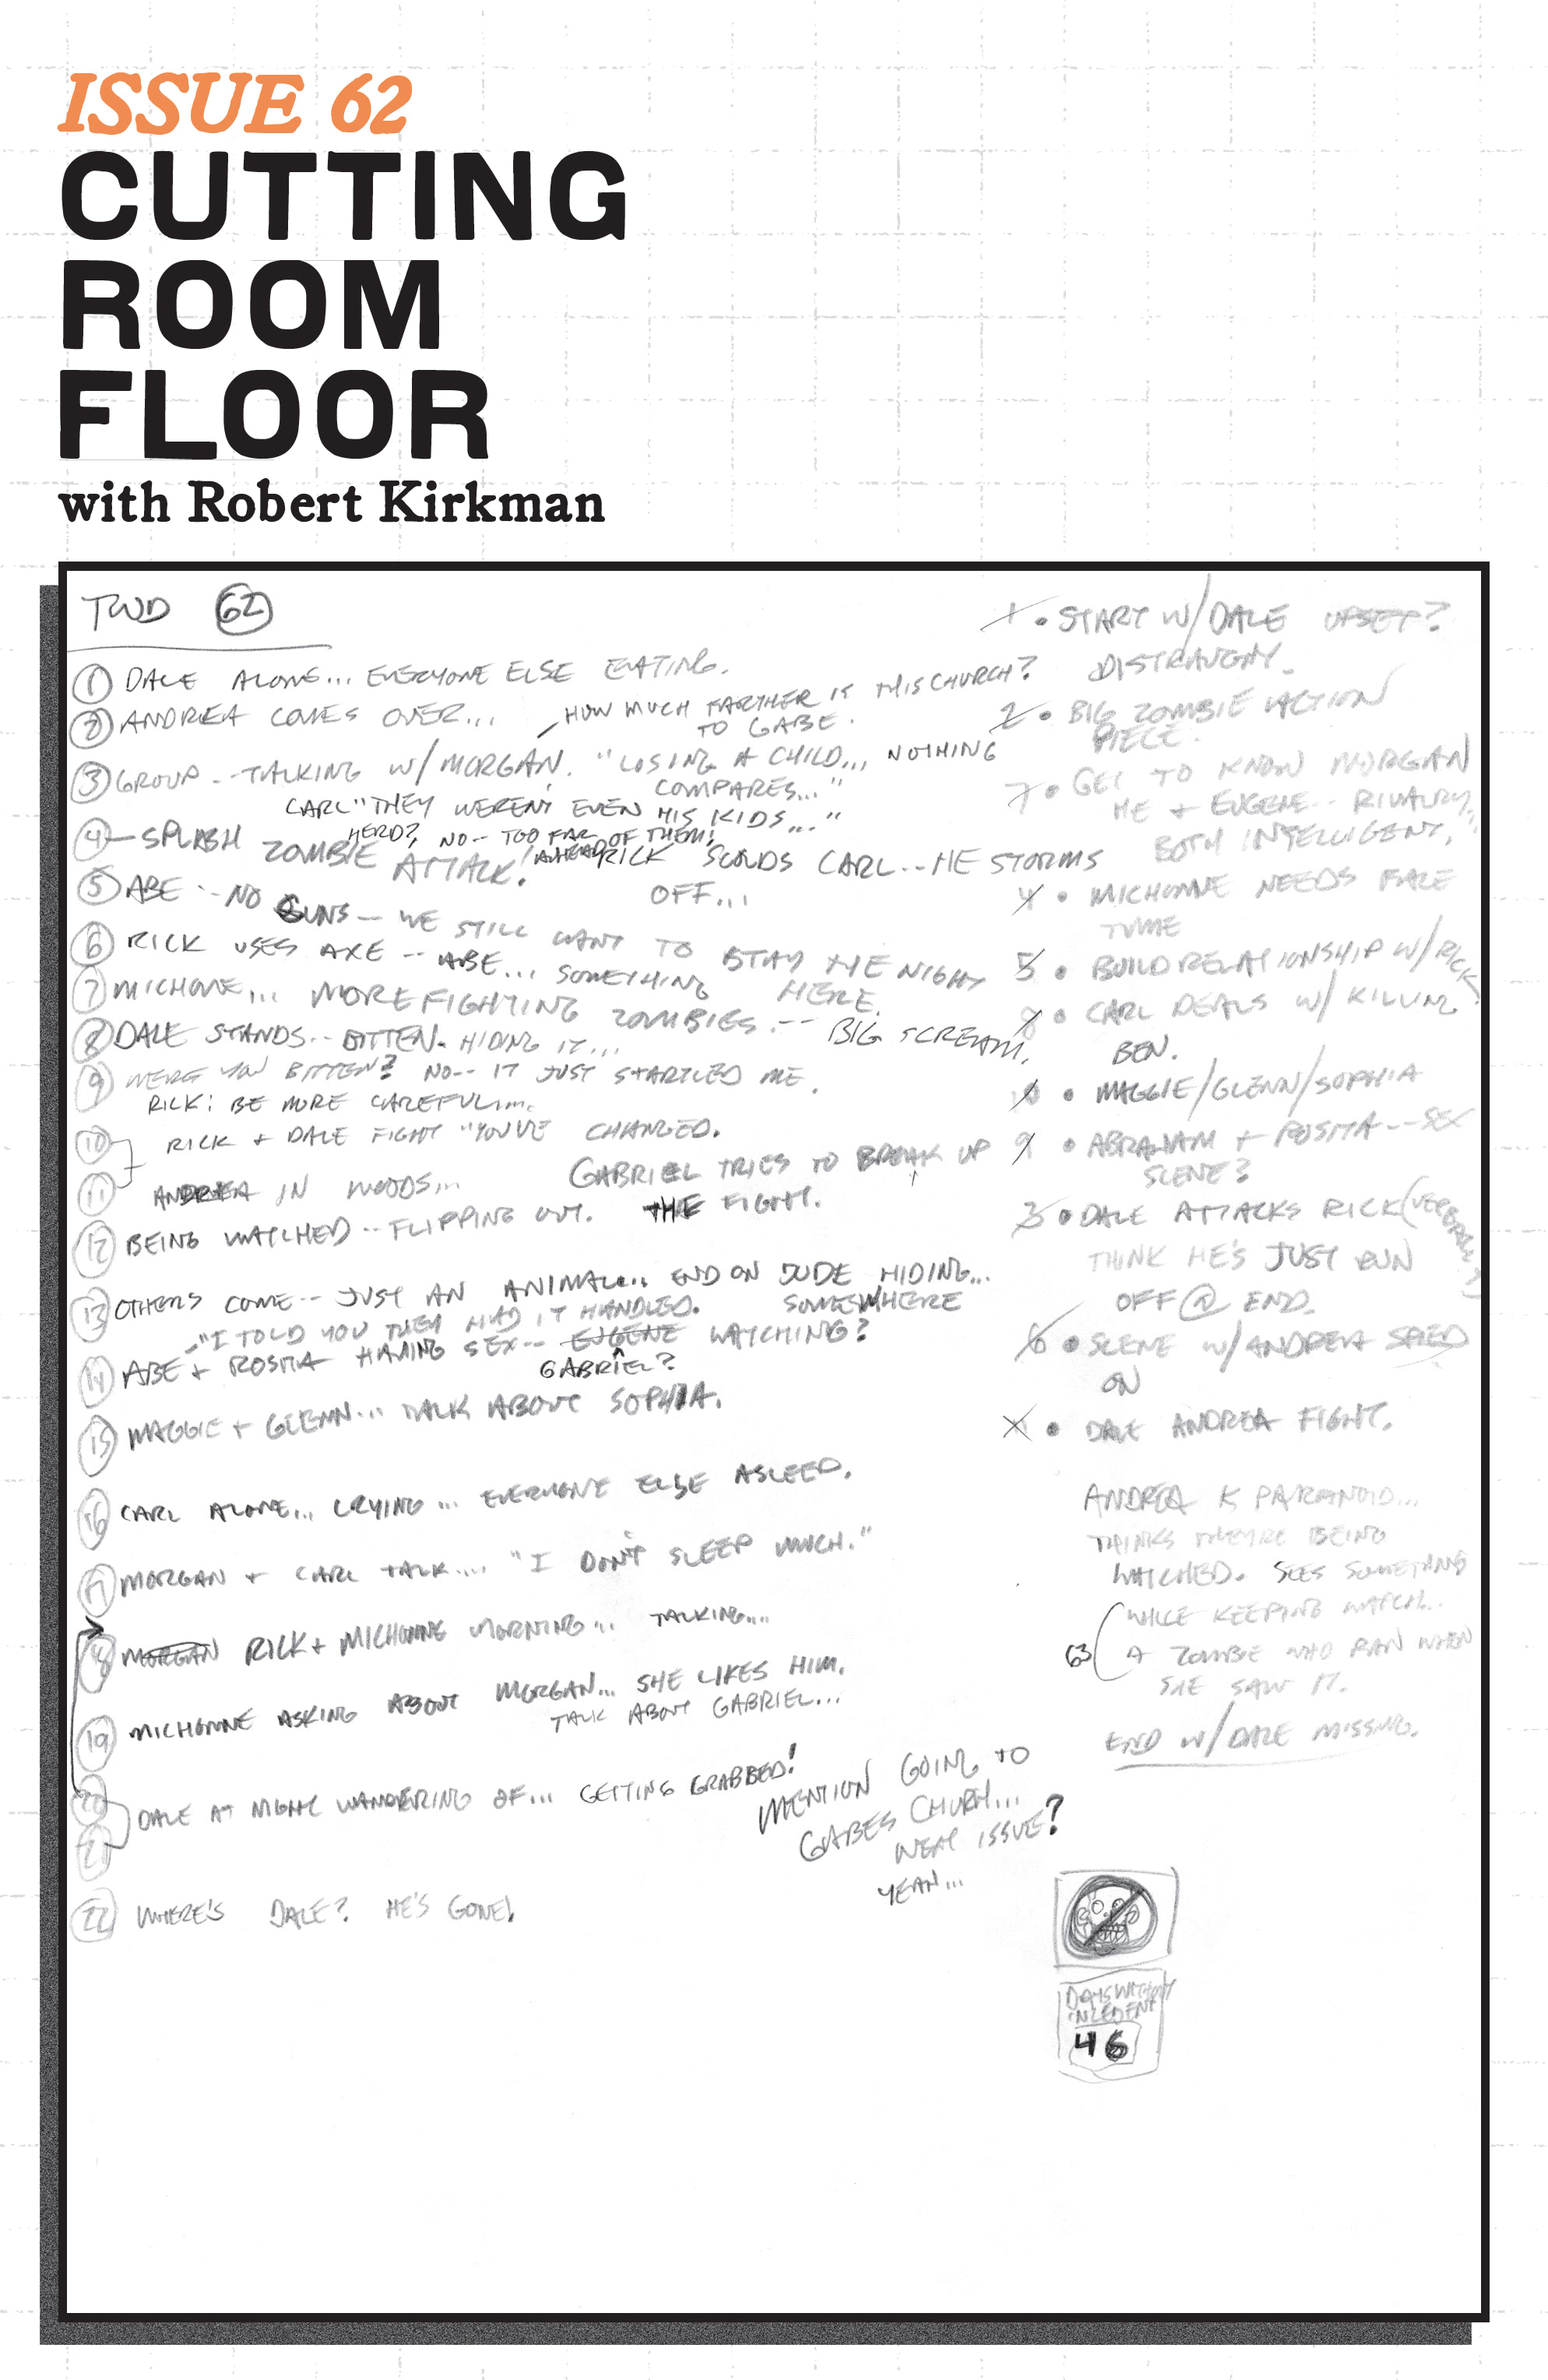 ISSUE 62
CUTTING
ROOM
FLOOR
with Robert Kirkman
TWD 62
1 DALE ALONE... EVERYONE ELSE EATING.
2 ANDREA COMES OVER...
HOW MUCH FARTHER IS THIS CHURCH?
TO GABE.
3 GROUP -- TALKING W/ MORGAN. "LOSING A CHILD... NOTHING
COMPARES..."
CARL "THEY WEREN'T EVEN HIS KIDS..."
HERD? NO -- TOO FAR
AHEAD OF THEM!
4 - SPLASH ZOMBIE ATTACK!
RICK SCOLDS CARL -- HE STORMS
OFF...
5 ABE -- NO GUNS -- WE STILL WANT TO STAY THE NIGHT
HERE.
6 RICK USES AXE -- ABE... SOMETHING
7 MICHONE... MORE FIGHTING ZOMBIES --
BIG SCREAM.
8 DALE STANDS -- BITTEN. HIDING IT...
9 WERE YOU BITTEN? NO -- IT JUST STARTLED ME.
RICK: BE MORE CAREFUL...
10 RICK + DALE FIGHT "YOU'VE CHANGED.
11 ANDREA IN WOODS...
GABRIEL TRIES TO BREAK UP
THE FIGHT.
12 BEING WATCHED -- FLIPPING OUT.
13 OTHERS COME -- JUST AN ANIMAL... END ON DUDE HIDING...
SOMEWHERE
"I TOLD YOU THEY HAD IT HANDLED.
14 ABE + ROSITA HAVING SEX -- EUGENE WATCHING?
GABRIEL?
15 MAGGIE + GLENN... TALK ABOUT SOPHIA.
16 CARL ALONE... CRYING... EVERYONE ELSE ASLEEP.
17 MORGAN + CARL TALK.... "I DON'T SLEEP MUCH."
18 MORGAN RICK + MICHONNE MORNING... TALKING...
19 MICHONNE ASKING ABOUT MORGAN... SHE LIKES HIM.
TALK ABOUT GABRIEL...
20
21 DALE AT NIGHT WANDERING OF... GETTING GRABBED!
MENTION GOING TO
GABES CHURH...
NEXT ISSUE?
YEAH...
22 WHERE'S DALE? HE'S GONE!
1 • START W/ DALE UPSET?
DISTRAUGHT.
2 • BIG ZOMBIE ACTION
PIECE.
7 • GET TO KNOW MORGAN
HE + EUGENE -- RIVALRY...
BOTH INTELLIGENT.
4 • MICHONNE NEEDS FACE
TIME
5 • BUILD RELATIONSHIP W/ RICK
8 • CARL DEALS W/ KILLING
BEN.
10 • MAGGIE/GLENN/SOPHIA
9 • ABRAHAM + ROSITA -- SEX
SCENE?
3 • DALE ATTACKS RICK (VERBALLY)
THINK HE'S JUST RUN
OFF @ END.
6 • SCENE W/ ANDREA SPIED
ON
• DALE ANDREA FIGHT.
ANDREA IS PARANOID...
THINKS THEYRE BEING
WATCHED. SEES SOMETHING
WHILE KEEPING WATCH...
63
A ZOMBIE WHO RAN WHEN
SHE SAW IT.
END W/ DALE MISSING.
DAYS WITHOUT
INCEDENT
46